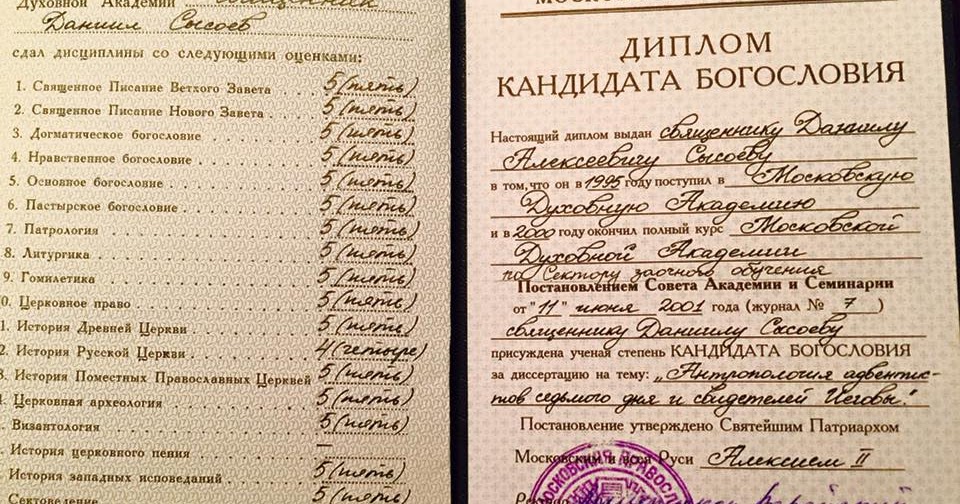 Духовной Академии священник
Даниил Сысоев
сдал дисциплины со следующими оценками:
1. Священное Писание Ветхого Завета . . . . 5 (пять)
2. Священное Писание Нового Завета . . . . 5 (пять)
3. Догматическое богословие 5 (пять)
4. Нравственное богословие . . . . 5 (пять)
5. Основное богословие . . . . 5 (пять)
6. Пастырское богословие . . . . 5 (пять)
7. Патрология . . . . 5 (пять)
8. Литургика . . . . 5 (пять)
9. Гомилетика . . . . 5 (пять)
0. Церковное право . . . . 5 (пять)
1. История Древней Церкви . . . . 5 (пять)
2. История Русской Церкви . . . . 4 (четыре)
3. История Поместных Православных Церквей 5 (пять)
. Церковная археология . . . . 5 (пять)
. Византология . . . . 5 (пять)
. История церковного пения . . . . —
История западных исповеданий . . . . 5 (пять)
Сектоведение . . . . 5 (пять)
ДИПЛОМ
КАНДИДАТА БОГОСЛОВИЯ
Настоящий диплом выдан священнику Даниилу
Алексеевичу Сысоеву
в том, что он в 1995 году поступил в Московскую
Духовную Академию
и в 2000 году окончил полный курс Московской
Духовной Академии
по Сектору заочного обучения
Постановлением Совета Академии и Семинарии
от "11" июня 2001 года (журнал № 7 )
священнику Даниилу Сысоеву
присуждена ученая степень КАНДИДАТА БОГОСЛОВИЯ
за диссертацию на тему: „Антропология адвентис-
тов седьмого дня и свидетелей Иеговы."
Постановление утверждено Святейшим Патриархом
Московским и всея Руси Алексием II
Ректор